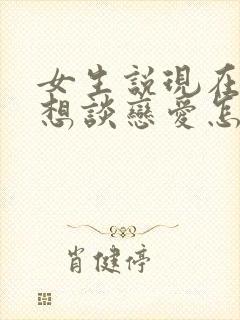 女生説現在
想談戀愛怎
肖健停